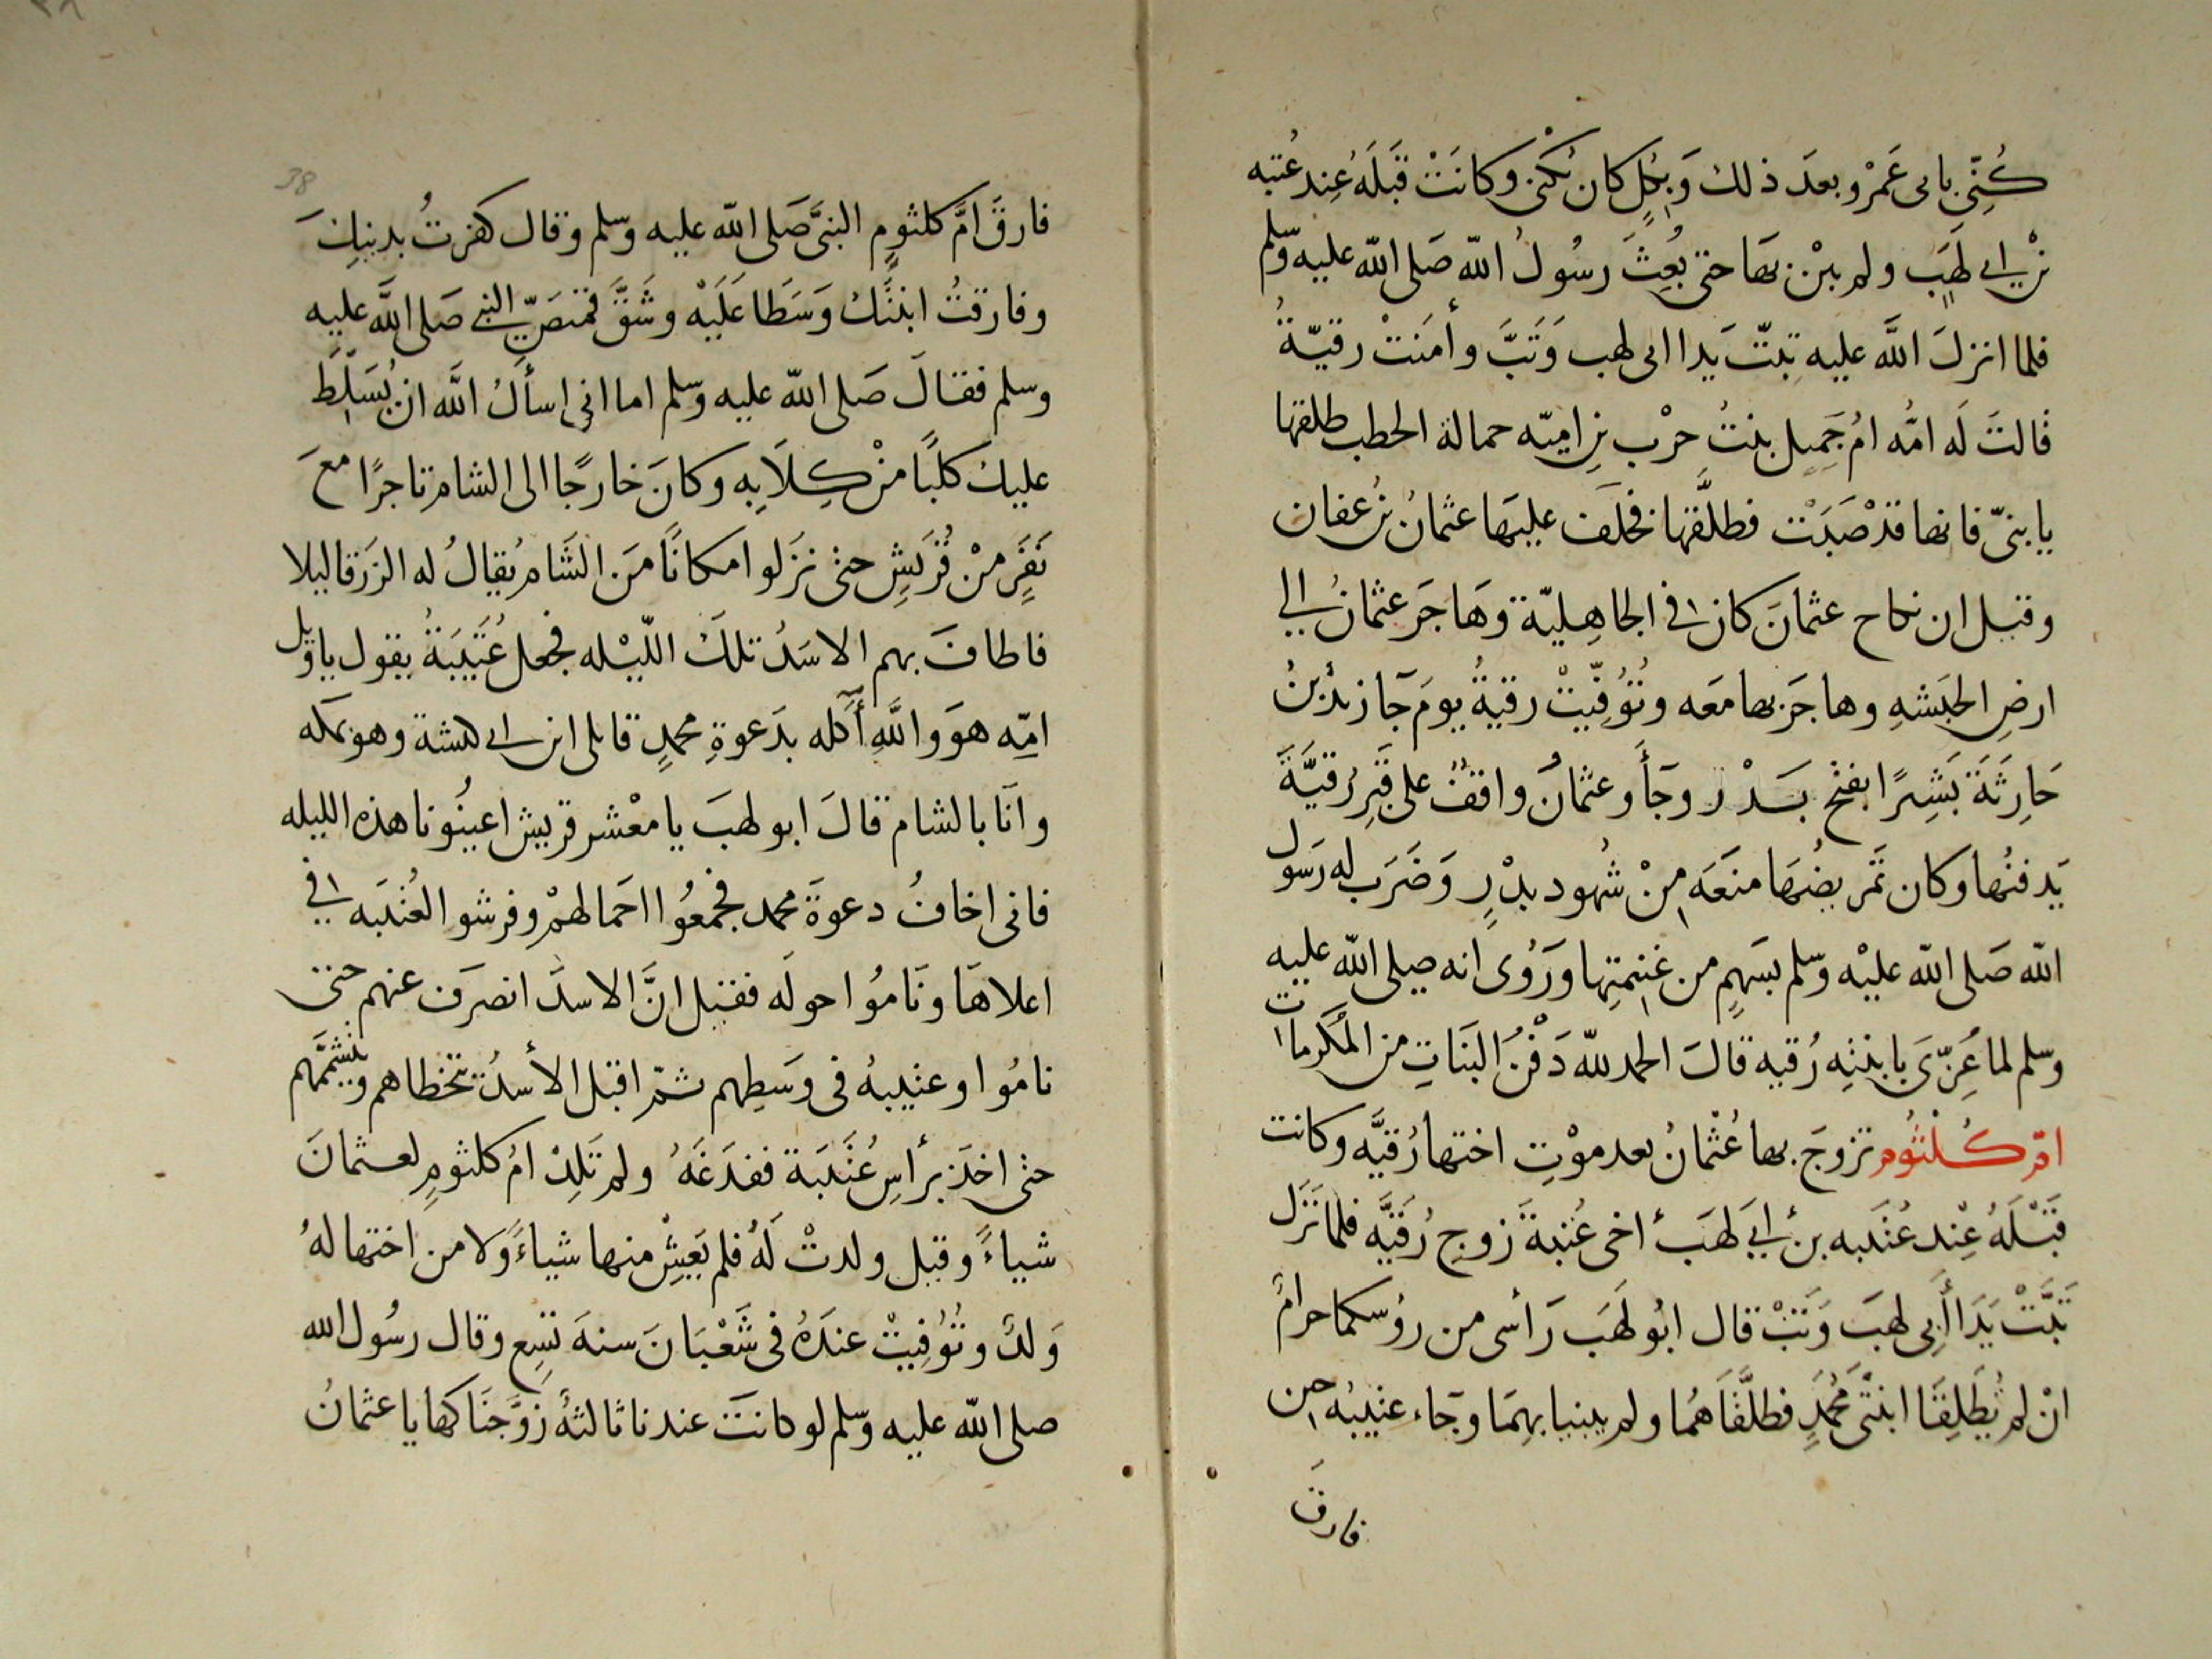 كُنِّيَ بابى عَمْرو بعدَ ذلك وَبِكُلٍ كان يُكنىٰ وكانَتْ قَبْلَهُ عِند عُتبه
بْنِ ابى لهَبٍ ولم يبْنِ بها حتى بُعِثَ رسُولُ اللّه صَلى اللّه عليه وسّلم
فلما انزلَ اللَّه عليه تبتّ يَدا ابى لهب وَتَبَّ وأمَنَتْ رقيّةُ
قالتَ لَه امُّه امُ جَمِيل بنتُ حرْب بنِ اميّه حمالة الحطب طلقها
يا بنىّ فانها قدْ صَبَتْ فطلَّقها فخلَف عليهَا عثمانُ بنُ عفان
وقيل ان نكاح عثمانَ كان فى الجاهِليّة وَهَاجَر عثمانُ الى
ارضِ الحبَشهِ وهاجَرَ بها معَه وتُوُفِّيتْ رقيةُ يومَ جَآ زيدُ بنُ
حَارِثَةَ بَشِيرًا بفتح بَدْر وجَأَ وعثمانُ واقفٌ على قَبرِ رُقيَّةَ
يَدفنُها وكان تمَريضُهَا منَعَه مِنْ شُهود بدْرٍ وَضَرَب له رَسول
اللّه صَلى اللّه عليْه وسّلم بسَهمٍ من غنِيمتِها ورَوُى انه صلى اللّه عليه
وسّلم لما عُزِّىَ بابنتِه رُقيه قالَ الحمد للّه دَفْنُ البنَاتِ من المكَرمات
امّ كُلْثُوم تزوجَ بها عُثْمانُ بعد موْتِ اختها رُقيَّه وكانت
قَبْلَهُ عِنْد عُتَيبه بن أبىَ لهَب أخى عُتبةَ زوجِ رُقَيَّه فلما نَزَل
تَبَّتْ يَدَا أَبِى لهبَ وَتبْ قال ابُو لهَبَ رَأسى من رؤسكما حرامٌ
انْ لم تُطَلِقَا ابنتَى مُحَمَّدٍ فطلَّقَاهُما ولم يبنيا بهِمَا وجَآء عتيبُه حين
فارقَ
فارقَ امَّ كلثومٍ النبىَّ صَلى اللّه عليه وسّلم وقال كفرتُ بدينكَ
وفارقتُ ابنتَكَ وَسَطا عَلَيْه وشَقَّ قميصَ النبى صَلى اللَّه عليه
وسلم فقالَ صَلى اللّه عليه وسّلم اما انى اسأَلُ اللَّه ان يُسَلِّطَ
عليك كلبًا منْ كِلَابِه وكانَ خارجًا الى الشام تاجرًا معَ
نَفَرٍ منْ قُرَيشِ حتى نزَلوا مكانًا مَن الشَام يُقالُ له الزَرقا ليلا
فاطافَ بهم الاسَدُ تلكَ اللّيْله فجعل عُتَيْبَةُ يقول ياويل
امّه هوَ واللَّهِ أَكله بدَعوةِ محمدٍ قاتلى ابن ابى كبشة وهو بمكه
وانَا بالشام قالَ ابو لهبَ يا معْشر قريش اعينُونا هذه الليله
فانى اخافُ دعوةَ محمد فجمعُوا احَمالهمْ وفرشو العُتيبَه فى
اعلاهَا ونَامُوا حولَه فقيل انَّ الاسدَ انصرَف عنهم حتى
نامُوا وعتيبهُ فى وسَطِهم ثمّ اقبل الأسدُ يتخطاهم ويتشمَّمهم
حتى اخذ برأسِ عُتَيبَة ففدَغَهُ ولم تَلِدْ امُ كلثومٍ لعثمانَ
شياءً وقيل ولدتْ لَهُ فلم يَعِيشْ منها شياءً وَلا من اختها لهُ
وَلدٌ وتُوُفِيتْ عندَهُ فى شَعْبَانَ سنهَ تسِع وقال رسُول الله
صلى اللّه عليه وسّلم لو كانتَ عندنا ثالثةٌ زوَّجنَا كها يا عثمانُ
38